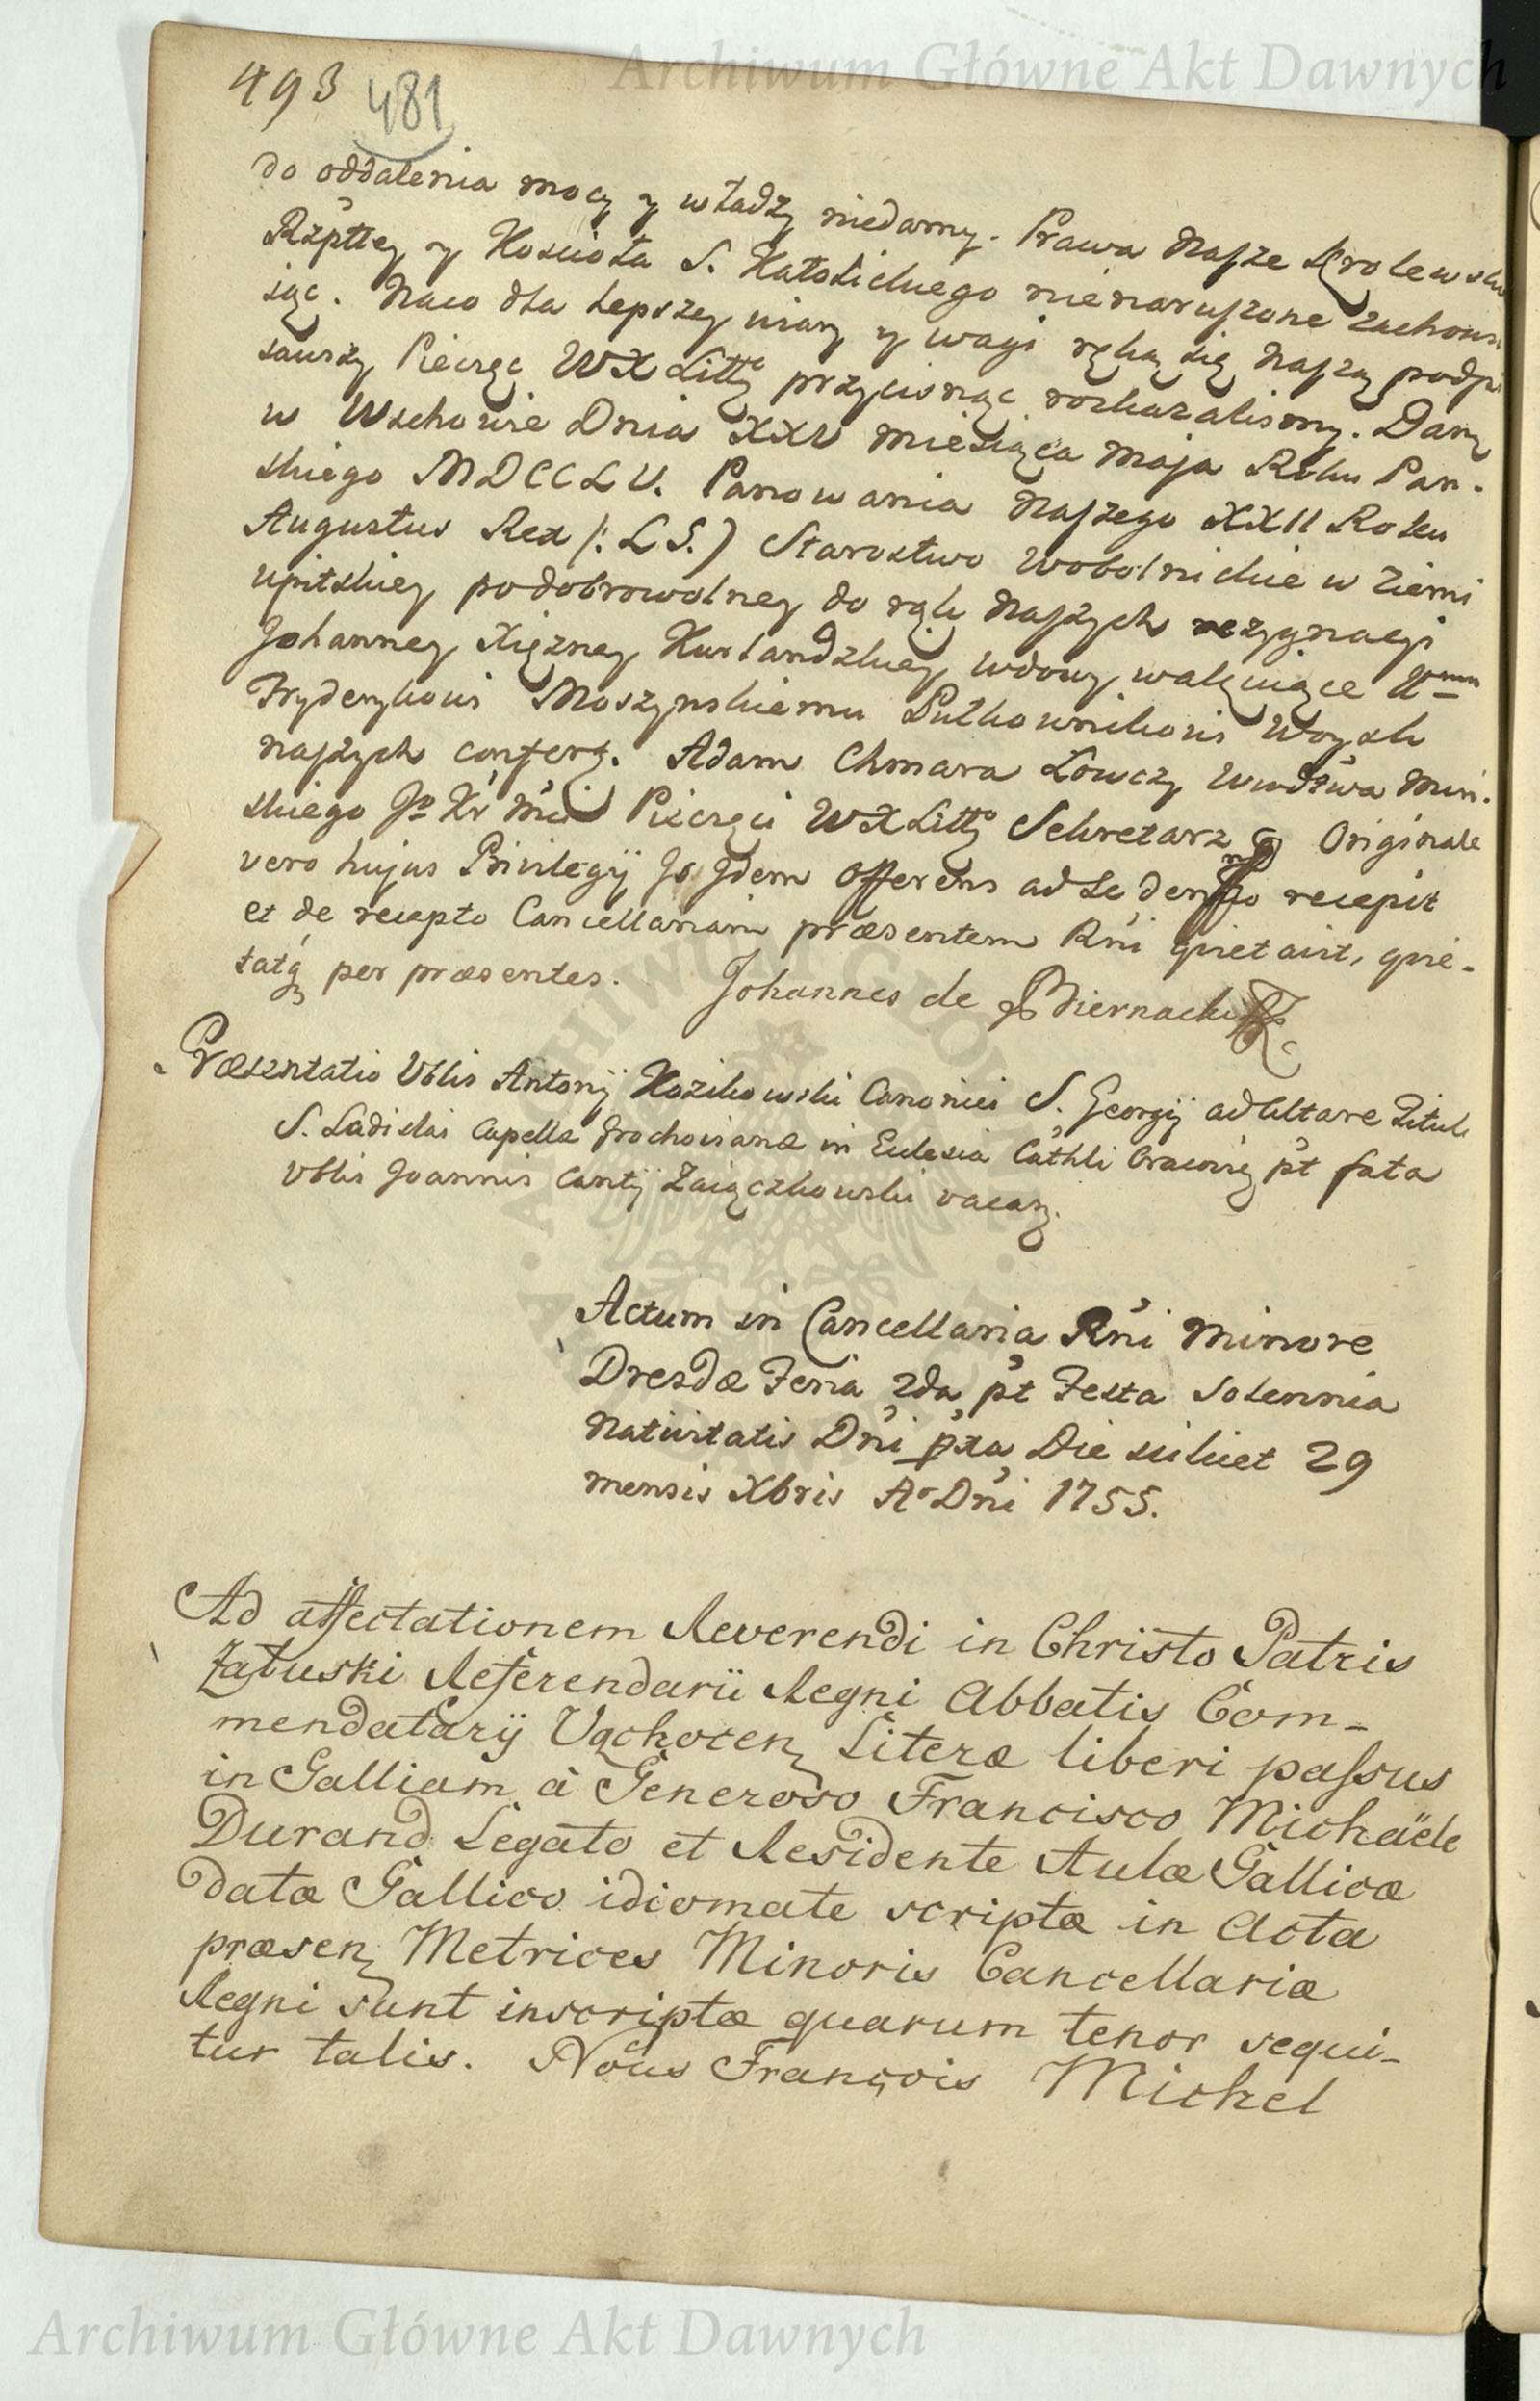 Archiwum Główne Akt Dawnych
493 481
do oddalenia mocy y władzy niedamy. Prawa Nasze Krolewskie
Rzpttey y Koscioła S. Katolickiego nienaruszone zachow
iąc. Naco dla lepszey wiary y wagi ręką się Naszą podpi
sawszy Pieczęć WXLitt przycisnąć roskazalismy. Dany
w Wschowie Dnia XXV miesiąca Maja Roku Pan-
skiego MDCCLV. Panowania Naszego XXII Roku
Augustus Rex (: L S.) Starostwo Wobolnickie w Ziemi
Upitskiey podobrowolney do rąk Naszych rezygnacyi
Johanney Xiężney Kurlandzkiey wdowy wakuiące Ur
Fryderykowi Moszynskiemu Pułkownikowi Woysk
naszych confert. Adam Chmara Łowczy Wwdztwa Min-
skiego Jo Kr Mci Pieczęci WXLitt Sekretarz mp Originale
vero hujus Privilegÿ Is Idem Offerens ad se denuo recepit
et de recepto Cancellariam præsentem Rni quietavit, quie-
tatq per præsentes. Johannes de Biernacki
Præsentatio Vblis Antonÿ Kozikowski Canonici S. Georgÿ ad Altare Tituli
S. Ladislai Capellæ Grochovianæ in Ecclesia Cathli Cracovien pt fata
Vblis Joannis Cantÿ Zaiączkowski vacan.
Actum in Cancellaria Rni Minore
Dresdæ Feria 2da pt Festa Solennia
Nativitatis Dni pxa Die scilicet 29
mensis Xbris Ao Dni 1755.
Ad affectationem Reverendi in Christo Patris
Załuski Referendarii Regni Abbatis Com-
mendatarÿ Vąchocen Literæ liberi passus
in Galliam à Generoso Francisco Michaële
Durand Legato et Residente Aulæ Gallicæ
datæ Gallico idiomate scriptæ in Acta
præsen Metrices Minoris Cancellariæ
Regni sunt inscriptæ quarum tenor sequi-
tur talis. Nous François Michel
Archiwum Główne Akt Dawnych